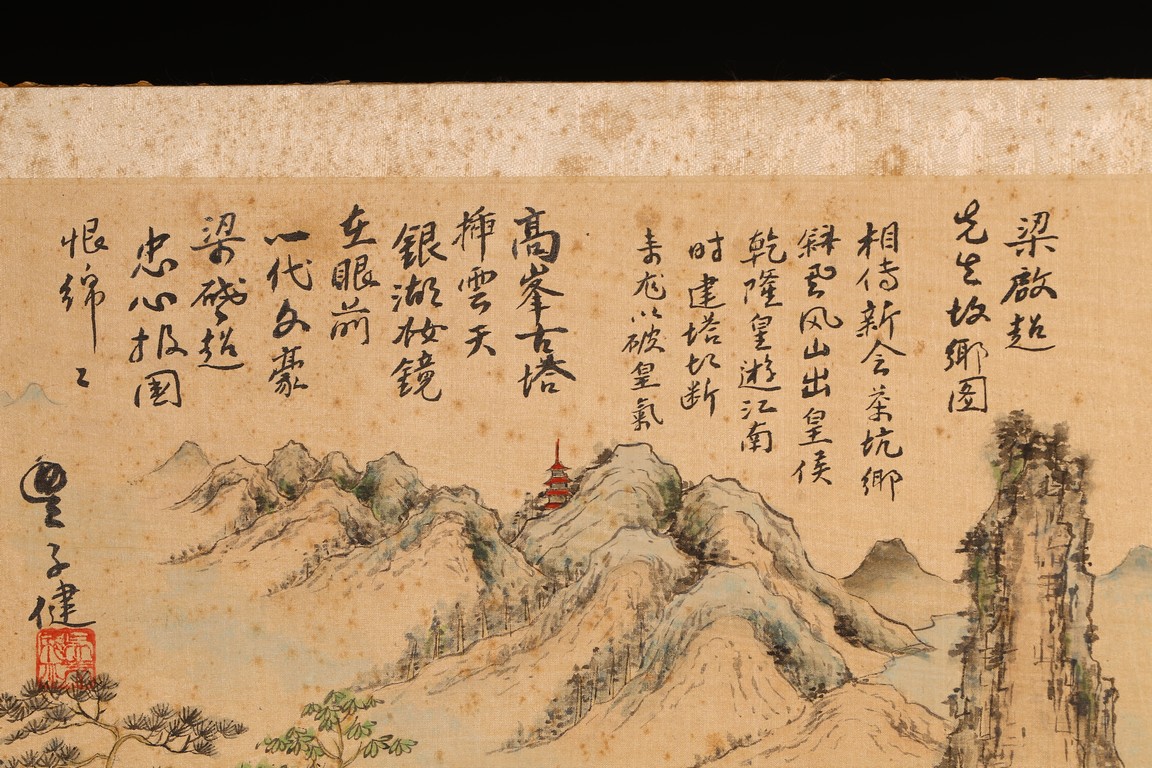 梁啟超
先生故鄉图
相传新会茶坑鄉
风山出皇侯
乾隆皇遊江南
时建塔切断
龙以破皇氣
高峯古塔
插雲天
銀湖妆鏡
在眼前
一代文豪
梁啓超
忠心报国
恨綿々
豐子健